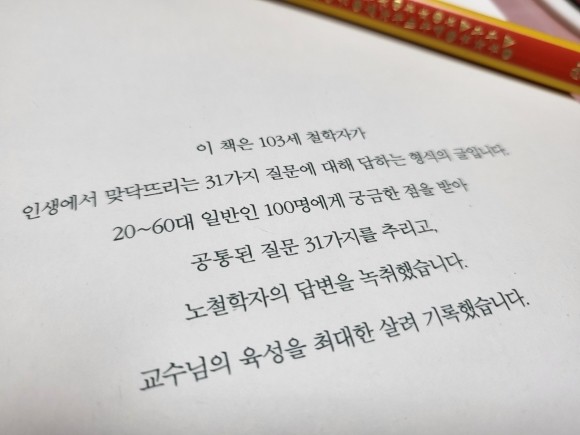 이 책은 103세 철학자가
인생에서 맞닥뜨리는 31가지 질문에 대해 답하는 형식의 글입니다.
20~60대 일반인 100명에게 궁금한 점을 받아
공통된 질문 31가지를 추리고,
노철학자의 답변을 녹취했습니다.
교수님의 육성을 최대한 살려 기록했습니다.